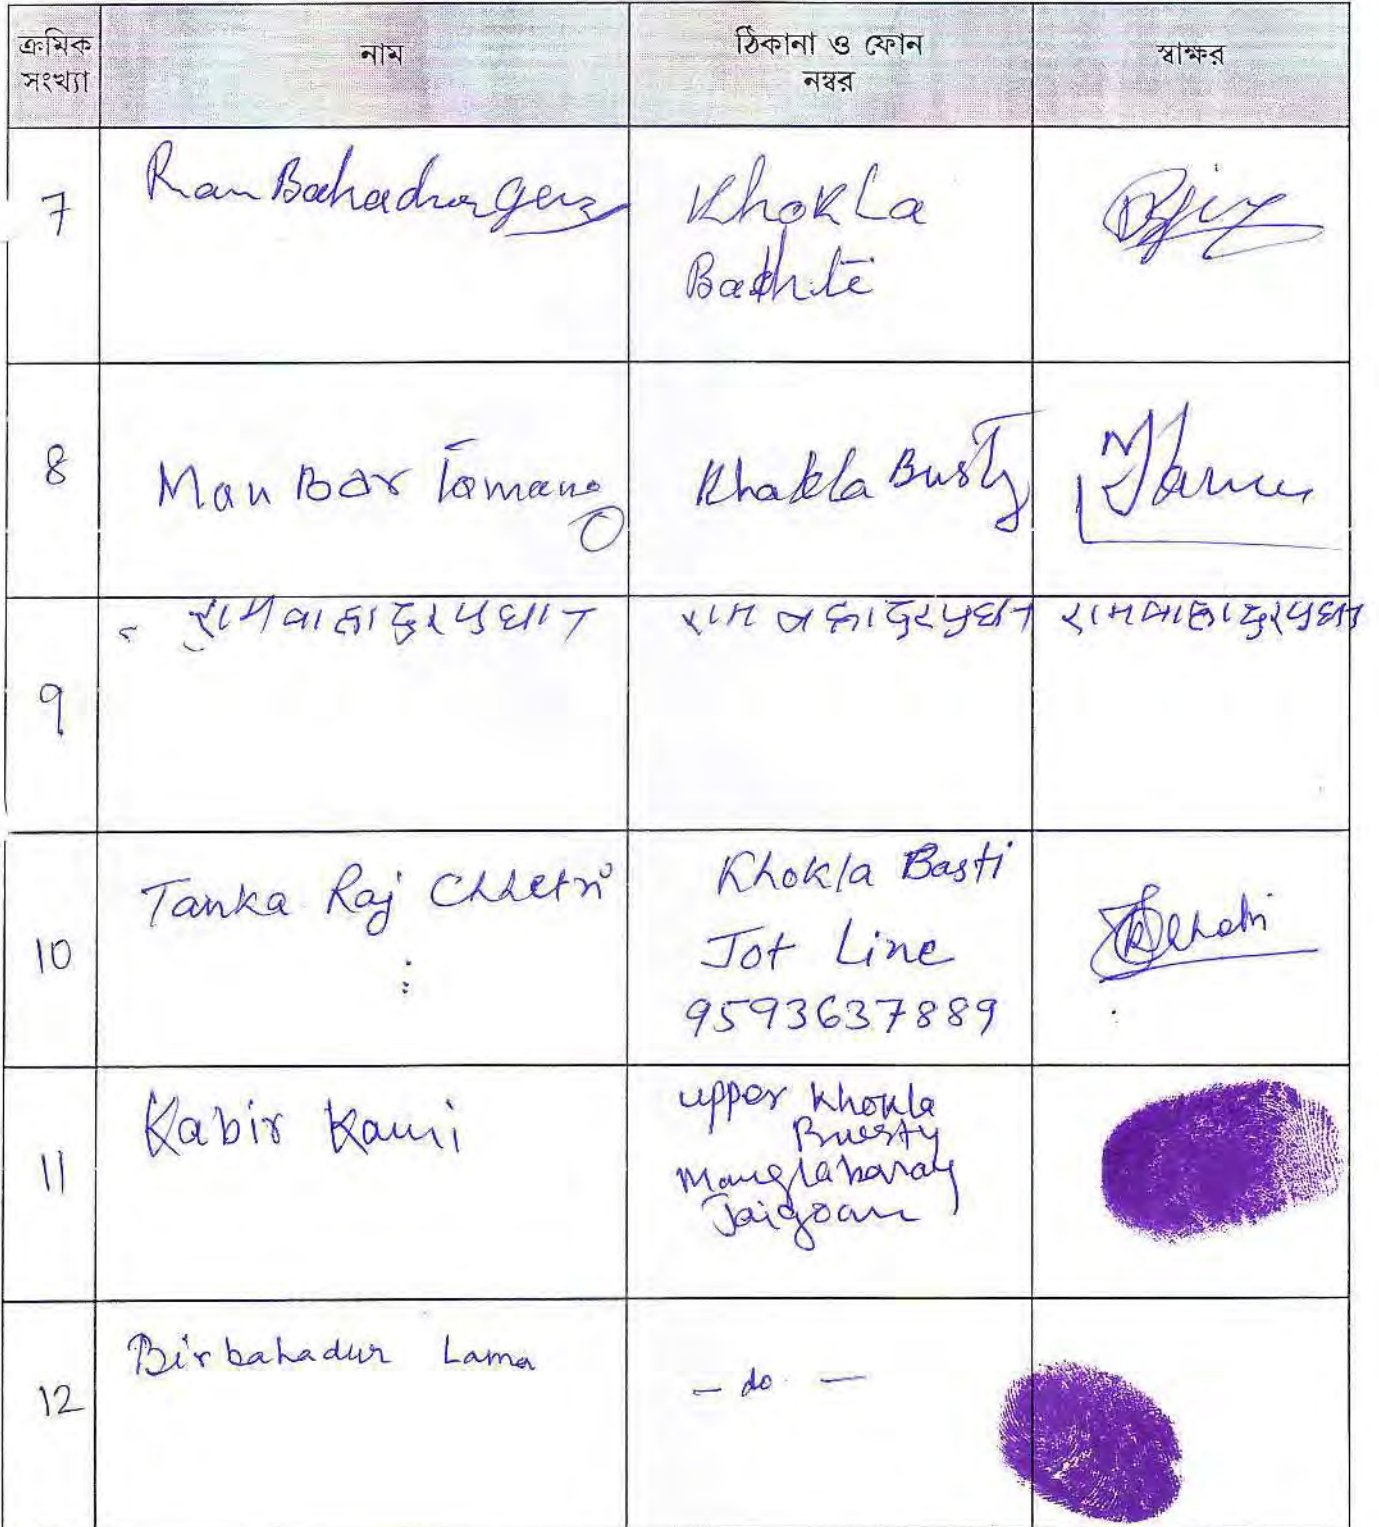 ক্রমিক সংখ্যা নাম ঠিকানা ও ফোন নম্বর স্বাক্ষর
7 Ran Bahadur Khokla
8 Man Bar Tamang Khakla Busty
9 रामवाहादुरप्रधान रामबहादुरप्रधान रामवाहादुरप्रधान
10 Tanka Raj Chhetri Khokla Basti
Jot Line
9593637889
11 Kabir Kami upper Khokla
Buesty
Manglabaray
Jaigoan
12 Birbahadur Lama — do —